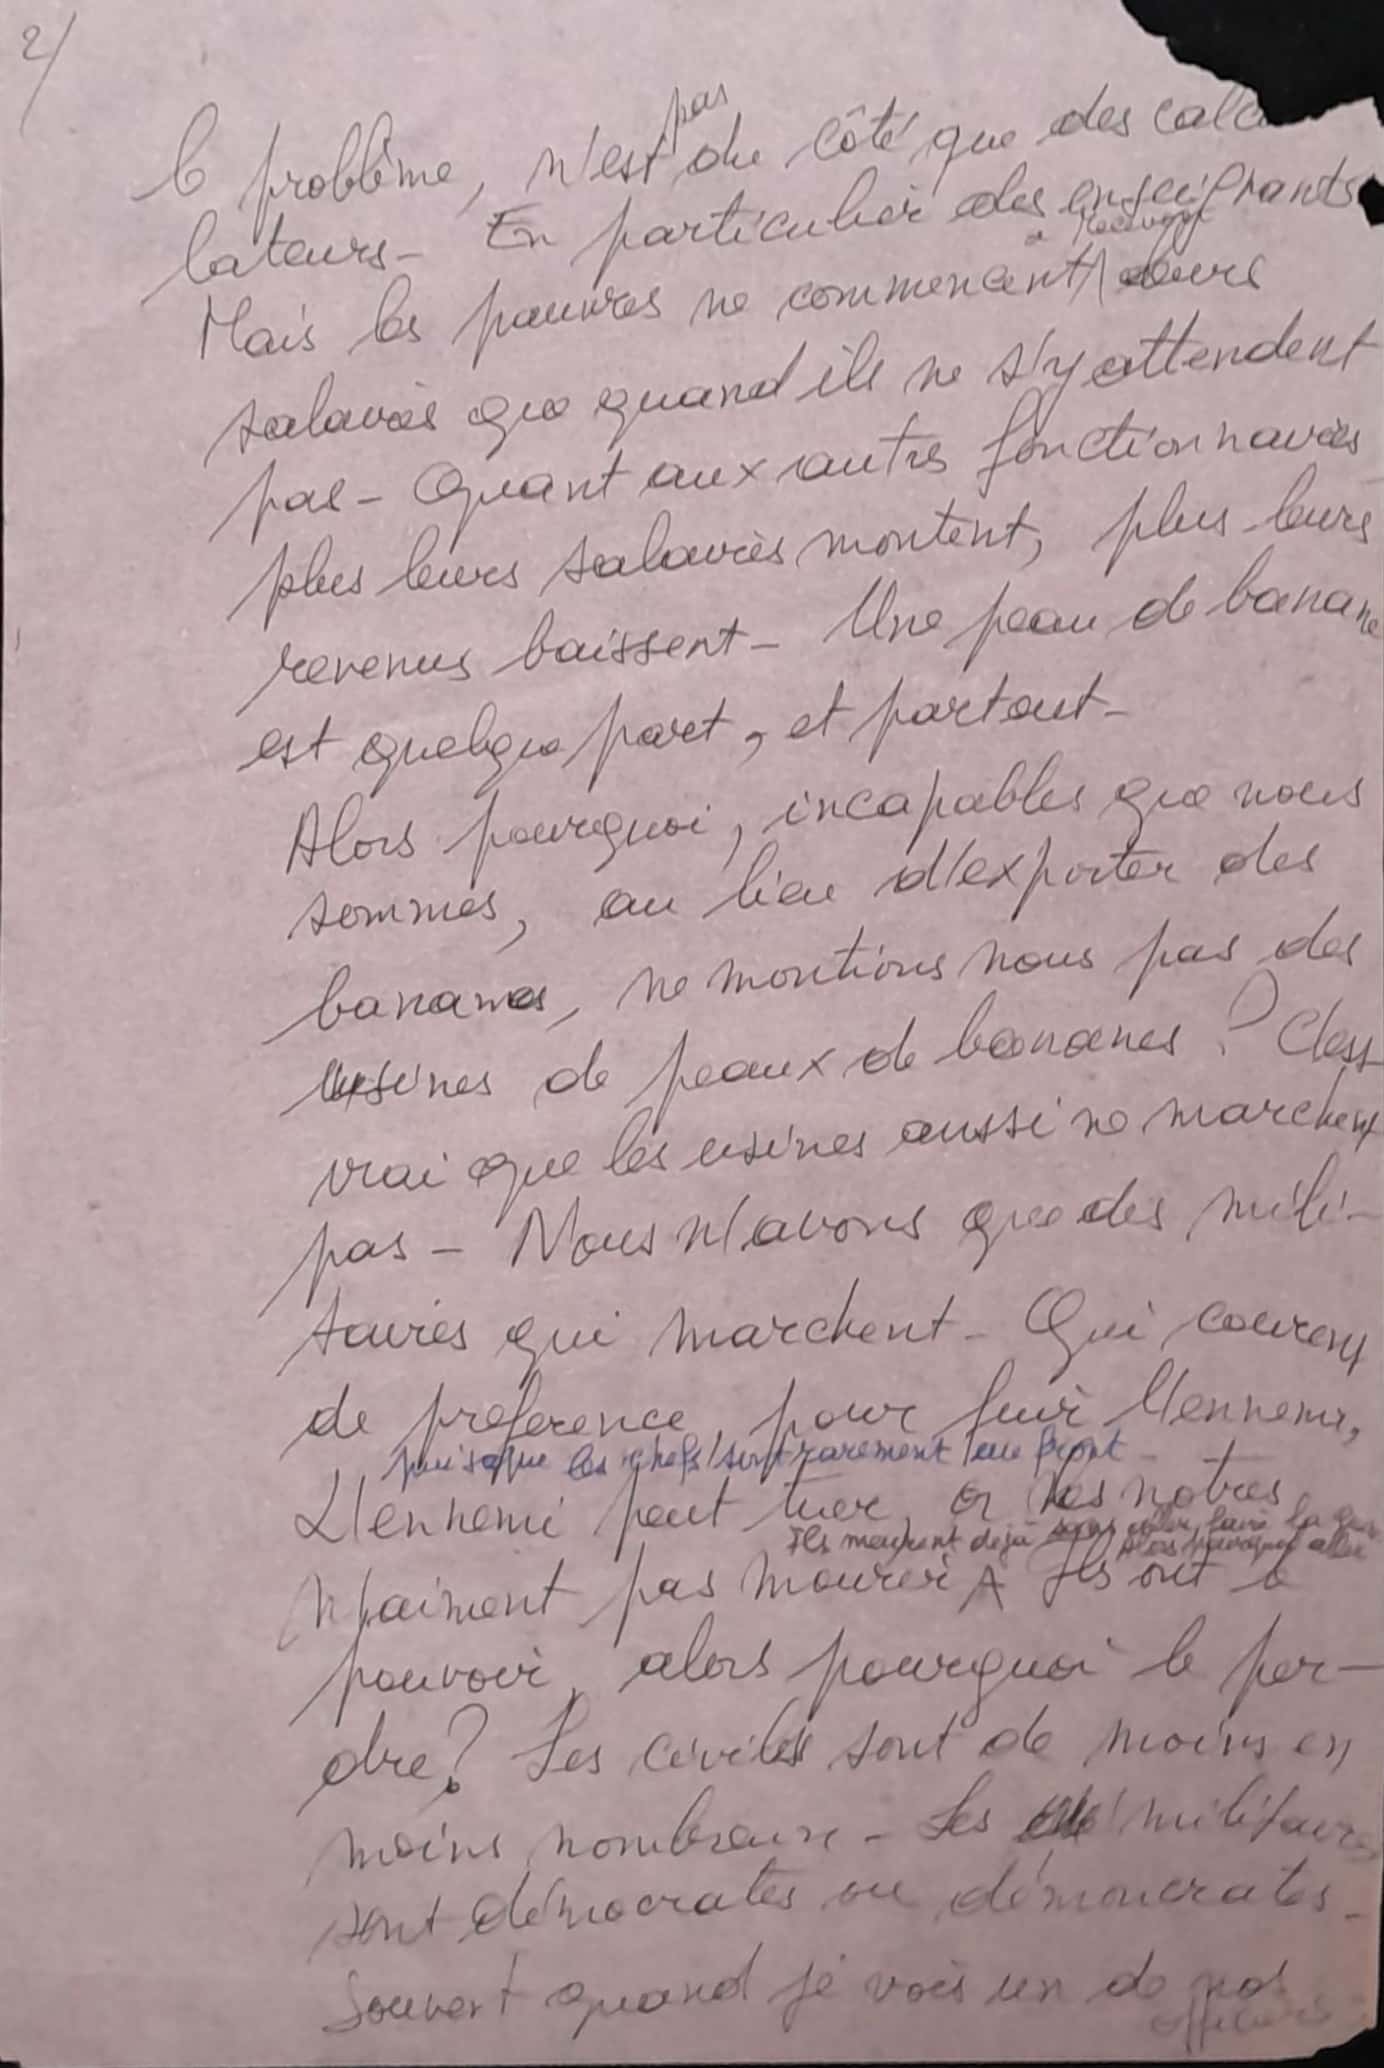 2/
pas
le problème, n'est du côté que des calcu
lateurs - En particulier des enseignants
à recevoir
Mais les pauvres ne commencent leurs
salaires que quand ils ne s'y attendent
pas - Quant aux autres fonctionnaires
plus leurs salaires montent, plus leurs
revenus baissent - Une peau de banane
est quelque part, et partout -
Alors pourquoi, incapables que nous
sommes, au lieu d'exporter des
bananes, ne montions nous pas des
usines de peaux de bananes ? C'est
vrai que les usines aussi ne marchent
pas - Nous n'avons que des mili-
taires qui marchent - Qui courent
de préférence, pour fuir l'ennemi,
puisque les chefs sont rarement au front -
L'ennemi peut tuer, or les nôtres
Ils meurent déjà sans aller faire la
Alors pourquoi aller
n'aiment pas mourir Ils ont le
pouvoir, alors pourquoi le per-
dre ? Les civils sont de moins en
moins nombreux - Les militaires
sont démocrates ou démoncrates -
Souvent quand je vois un de nos
officiers